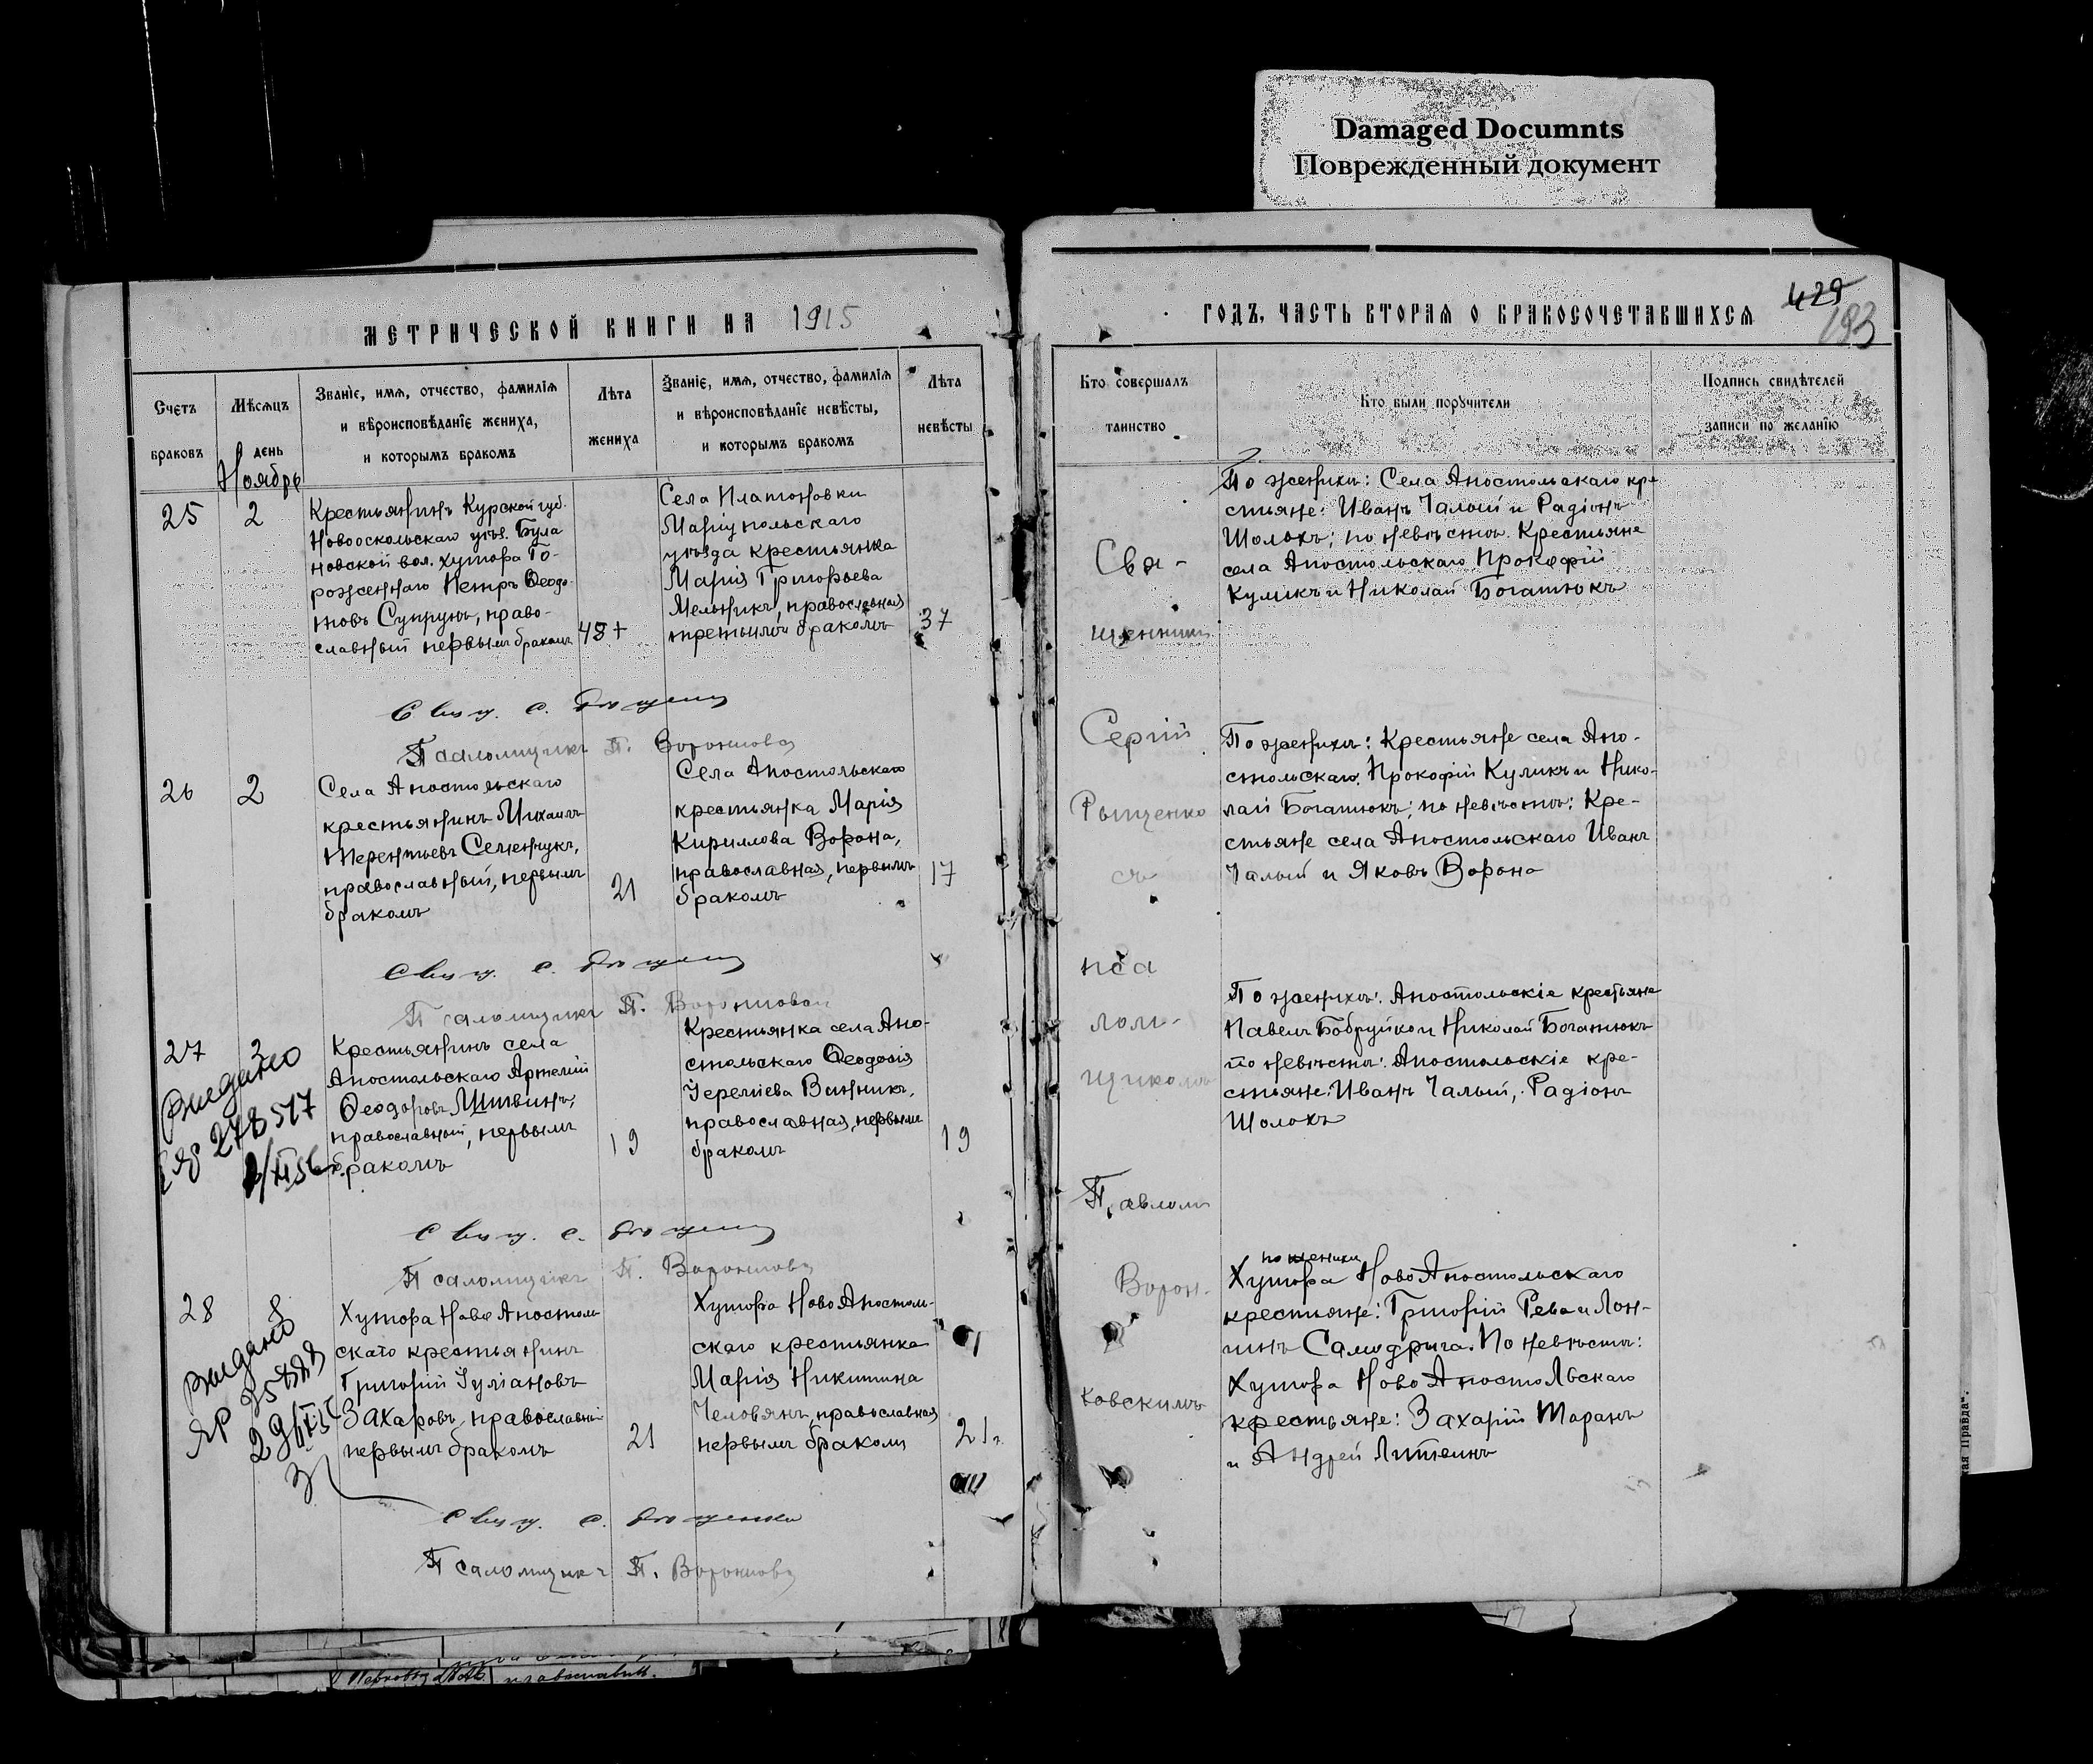 Damaged Documnts
Поврежденный документ
МЕТРИЧЕСКОЙ КНИГИ НА 1915
Счетъ браковъ
Мѣсяцъ день
Званіе, имя, отчество, фамилія
и вѣроисповѣданіе жениха,
и которымъ бракомъ
Лѣта
жениха
Званіе, имя, отчество, фамилія
и вѣроисповѣданіе невѣсты,
и которымъ бракомъ
Лѣта
невѣсты
Ноябрь
25
2
Крестьянинъ Курской губ.
Новооскольскаго уѣз. Була
новской вол. хутора Го-
роженнаго Петръ Ѳеодо-
товъ Супрунъ, право-
славный первымъ бракомъ
48
Села Платоновки
Маріупольскаго
уѣзда крестьянка
Марія Григорьева
Мельникъ, православная
третьимъ бракомъ
37
Свящ. С.
Псаломщикъ П.
26
2
Села Апостольскаго
крестьянинъ Михаилъ
Терентьевъ Семенчукъ,
православный, первымъ
бракомъ
21
Села Апостольскаго
крестьянка Марія
Кириллова Ворона,
православная, первымъ
бракомъ
17
Свящ. С.
Псаломщикъ П.
27
2
Выдано
278517
Крестьянинъ села
Апостольскаго Артемій
Ѳеодоровъ Литвинъ,
православный, первымъ
бракомъ
19
Крестьянка села Апо-
стольскаго Ѳеодосія
Іереміева Винникъ,
православная, первымъ
бракомъ
19
Свящ. С.
Псаломщикъ П.
28
8
Выдано
ЯР
Хутора Ново Апостоль
скаго крестьянинъ
Григорій Іуліановъ
Захаровъ, православный
первымъ бракомъ
21
Хутора Ново Апостоль-
скаго крестьянка
Марія Никитина
Человянъ, православная
первымъ бракомъ
21
Свящ. С.
Псаломщикъ П.
ГОДЪ, ЧАСТЬ ВТОРАЯ О БРАКОСОЧЕТАВШИХСЯ
429
193
Кто совершалъ
таинство
Кто были поручители
Подпись свидѣтелей
записи по желанію
Свя-
щенникъ
Сергій
Рыщенко
съ
пса
лом-
щикомъ
Павломъ
Ворон-
ковскимъ
По женихѣ: Села Апостольскаго кре
стьяне: Иванъ Чалый и Радіонъ
Шолохъ; по невѣстѣ. Крестьяне
села Апостольскаго Прокофій
Куликъ и Николай Богатюкъ
По женихѣ: Крестьяне села Апо-
стольскаго. Прокофій Куликъ и Нико-
лай Богатюкъ; по невѣстѣ: Кре-
стьяне села Апостольскаго Иванъ
Чалый и Яковъ Ворона
По женихѣ: Апостольскіе крестьяне
Павелъ Бобруйко и Николай Богатюкъ
по невѣстѣ: Апостольскіе кре-
стьяне: Иванъ Чалый, Радіонъ
Шолохъ
по женихѣ
Хутора Ново Апостольскаго
крестьяне: Григорій Рева и Лон-
гинъ Самодрига. По невѣстѣ:
Хутора Ново Апостольскаго
крестьяне: Захарій Таранъ
и Андрей Литвинъ